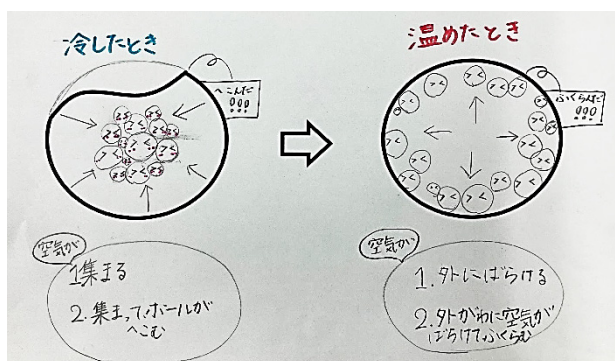 冷したとき
へこんだ
!!!
空気が
1.集まる
2.集まってボールが
へこむ
温めたとき
ふくらんだ
!!!
空気が
1.外にばらける
2.外がわに空気が
ばらけてふくらむ